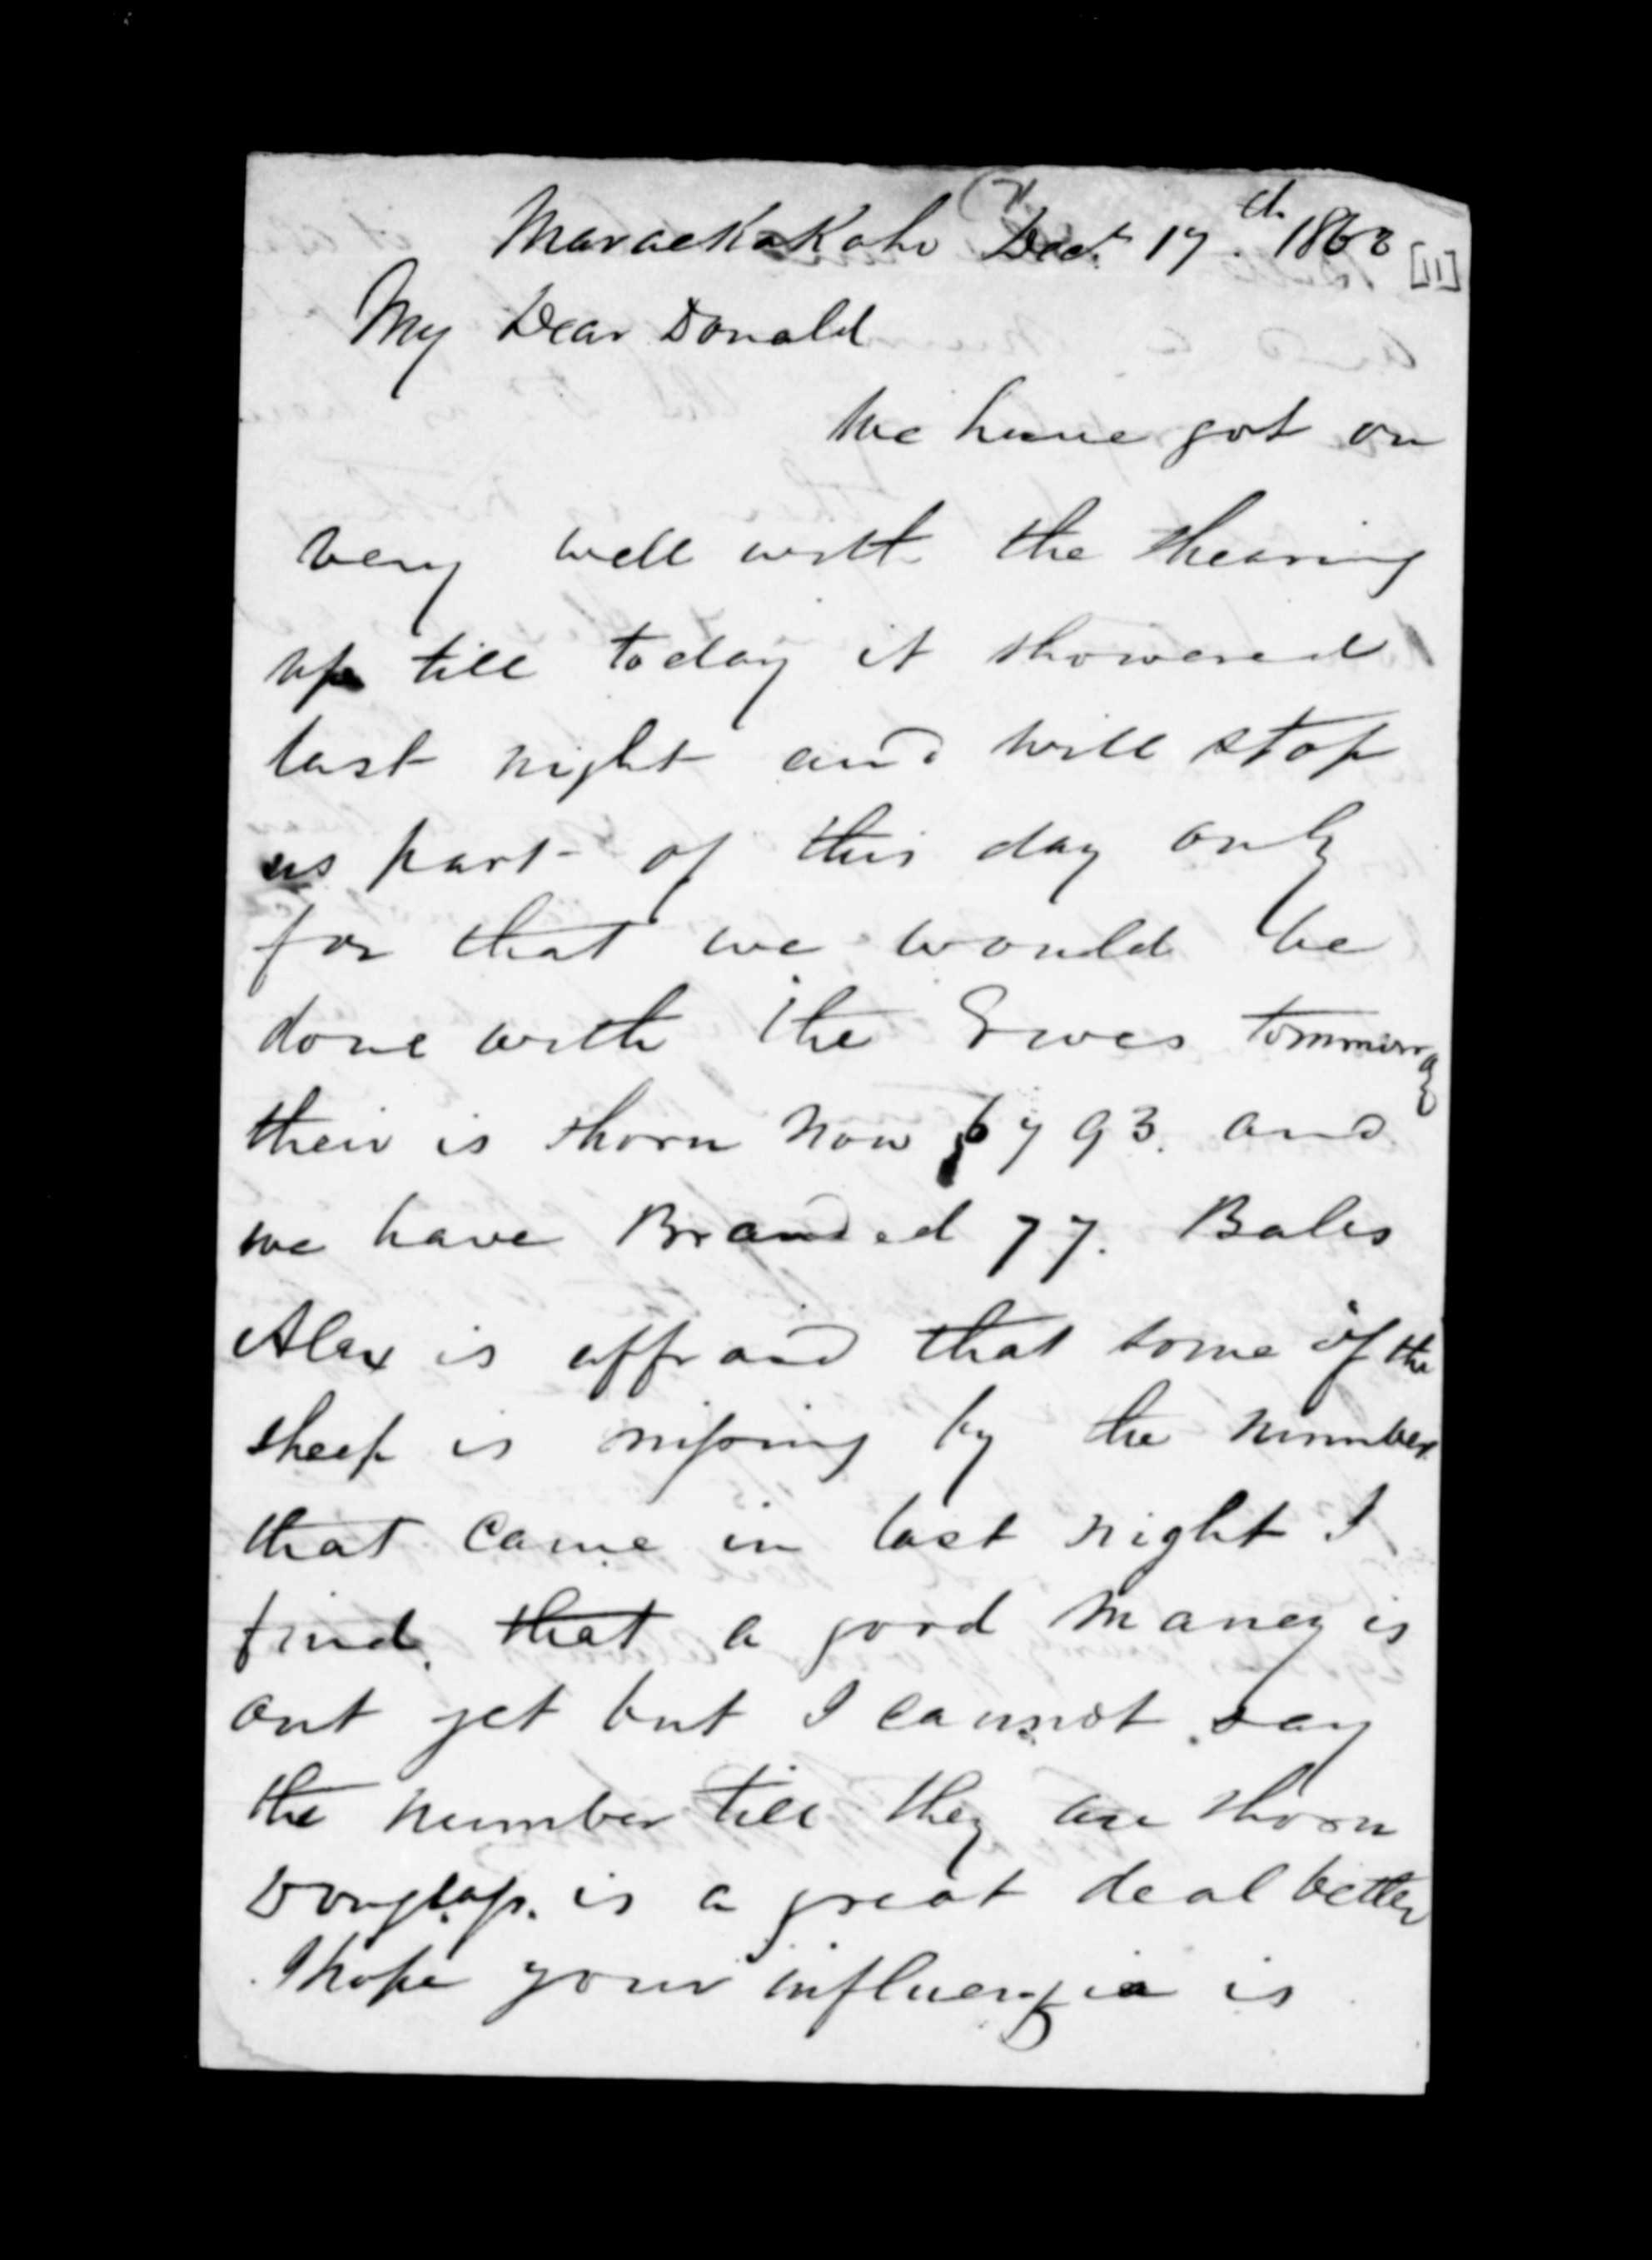 MaraeKaKaho Dect. 17th. 1868 [11]
My Dear Donald
We have got on
very well with the shearing
up till today it showered
last night and will stop
us part of this day only
for that we would be
done with the Ewes tommorow
their is shorn now 6793. and
we have Branded 77. Bales
Alex is affraid that some of the
sheep is missing by the number
that came in last night I
find that a good maney is
out yet but I cannot say
the number till they are shorn
Douglass. is a great deal better
I hope your influenzia is